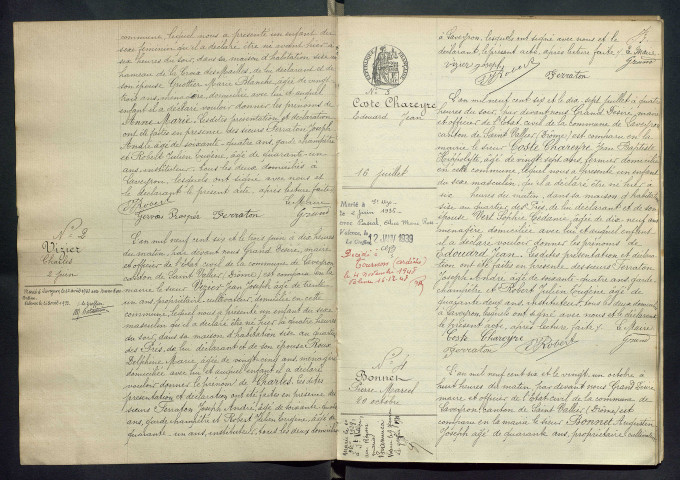 commune, lequel nous a présenté un enfant du
sexe féminin qu'il a déclaré être né avant hier à
six heures du soir, dans sa maison d'habitation sise au
hameau de la Croix des de lui déclarant et de
son épouse Marie Blanche, âgée de vingt
ans, ménagère domiciliée avec lui et auquel
enfant il a déclaré vouloir donner les prénoms de
Marie. Lesdites présentation et déclaration
ont été faites en présence des sieurs Joseph
André âgé de soixante quatre ans, garde champêtre
et Robert Julien Eugène, âgé de quarante-un
ans, instituteur, tous les deux domiciliés à
Laveyron, lesquels ont signé avec nous et
le déclarant le présent acte, après lecture faite
Robert Le Maire
Grand
N° 2
Vizier
Charles
2 juin
L'an mil neuf cent six et le trois juin à dix heures
du matin, par devant nous Grand maire
et officier de l'Etat civil de la commune de Laveyron
canton de Saint Vallier (Drôme) est comparu en la
mairie le sieur Vizier Jean Joseph, âgé de trente
ans propriétaire cultivateur, domicilié en cette
commune, lequel nous a présenté un enfant du sexe
masculin qu'il a déclaré être né hier à quatre heures
du soir, dans sa maison d'habitation sise au quartier
des Prés, de lui déclarant et de son épouse Roux
Delphine Marie, âgée de vingt cinq ans, ménagère
domiciliée avec lui et auquel enfant il a déclaré
vouloir donner le prénom de Charles. Lesdites
présentation et déclaration ont été faites en présence des
sieurs Joseph André, âgé de soixante quatre
ans, garde champêtre et Robert Julien Eugène, âgé de
quarante un ans, instituteur, tous les deux domiciliés
à Laveyron, lesquels ont signé avec nous et le
déclarant, le présent acte, après lecture faite. Le Maire
Vizier Joseph Grand
Robert
N° 3
Coste Chareyre
Edouard Jean
16 juillet
L'an mil neuf cent six et le dix-sept juillet à quatre
heures du soir, par devant nous Grand maire
et officier de l'Etat civil de la commune de Laveyron
canton de Saint Vallier (Drôme) est comparu en la
mairie le sieur Coste Chareyre Jean Baptiste
Hippolyte, âgé de vingt sept ans, fermier domicilié
en cette commune, lequel nous a présenté un enfant du
sexe masculin, qu'il a déclaré être né hier à
heures du matin, dans sa maison d'habitation
sise au quartier des Prés de lui déclarant et de son
épouse Sophie âgée de dix neuf ans
ménagère domiciliée avec lui et auquel enfant
il a déclaré vouloir donner les prénoms de
Edouard Jean. Lesdites présentation et
déclaration ont été faites en présence des sieurs
Joseph André âgé de soixante quatre ans,
garde champêtre et Robert Julien Eugène, âgé de
quarante deux ans, instituteur, tous les deux domiciliés
à Laveyron, lesquels ont signé avec nous et le déclarant
le présent acte, après lecture faite. Le Maire
Coste Chareyre Grand
Robert
Marié à
le juin 1935
avec
12 JUIN 1939
Décédé à
Tournon (Ardèche)
le novembre 1948
N° 4
Bonnet
Pierre Marcel
20 octobre
L'an mil neuf cent six et le vingt un octobre à
huit heures du matin, par devant nous Grand
maire et officier de l'Etat civil de la commune de
Laveyron canton de Saint Vallier (Drôme) est
comparu en la mairie le sieur Bonnet Augustin
Joseph âgé de quarante ans, propriétaire cultivateur